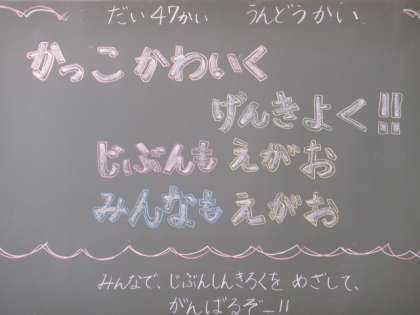 だい47かい うんどうかい
かっこかわいく
げんきよく!!
じぶんも えがお
みんなも えがお
みんなで、じぶんしんきろくを めざして、
がんばるぞー!!